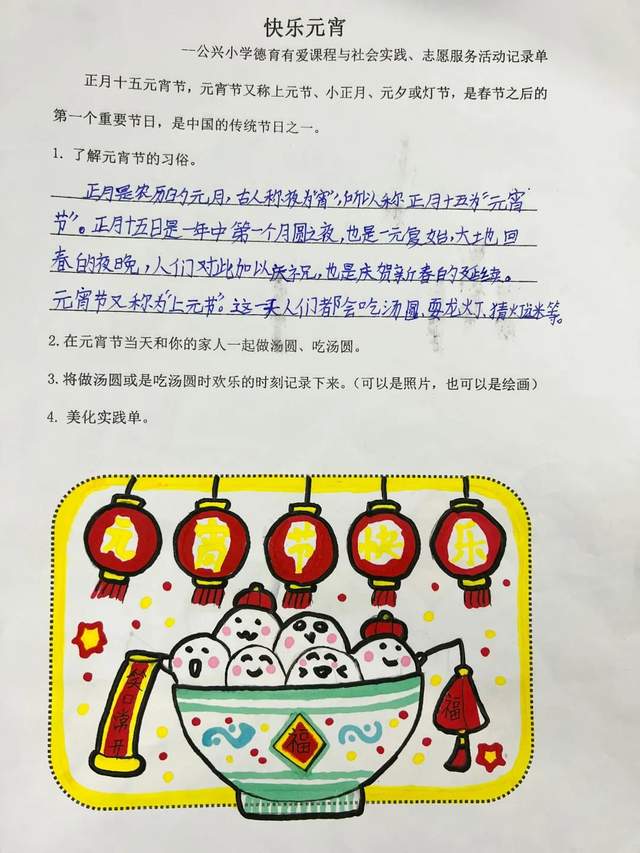 快乐元宵
--公兴小学德育有爱课程与社会实践、志愿服务活动记录单
正月十五元宵节，元宵节又称上元节、小正月、元夕或灯节，是春节之后的
第一个重要节日，是中国的传统节日之一。
1. 了解元宵节的习俗。
正月是农历的元月，古人称夜为"宵"，所以称正月十五为"元宵
节"。正月十五日是一年中第一个月圆之夜，也是一元复始，大地回
春的夜晚，人们对此加以庆祝，也是庆贺新春的延续。
元宵节又称为"上元节"。这一天人们都会吃汤圆、耍龙灯、猜灯谜等。
2.在元宵节当天和你的家人一起做汤圆、吃汤圆。
3.将做汤圆或是吃汤圆时欢乐的时刻记录下来。（可以是照片，也可以是绘画）
4. 美化实践单。
元宵节快乐
笑口常开
福
福